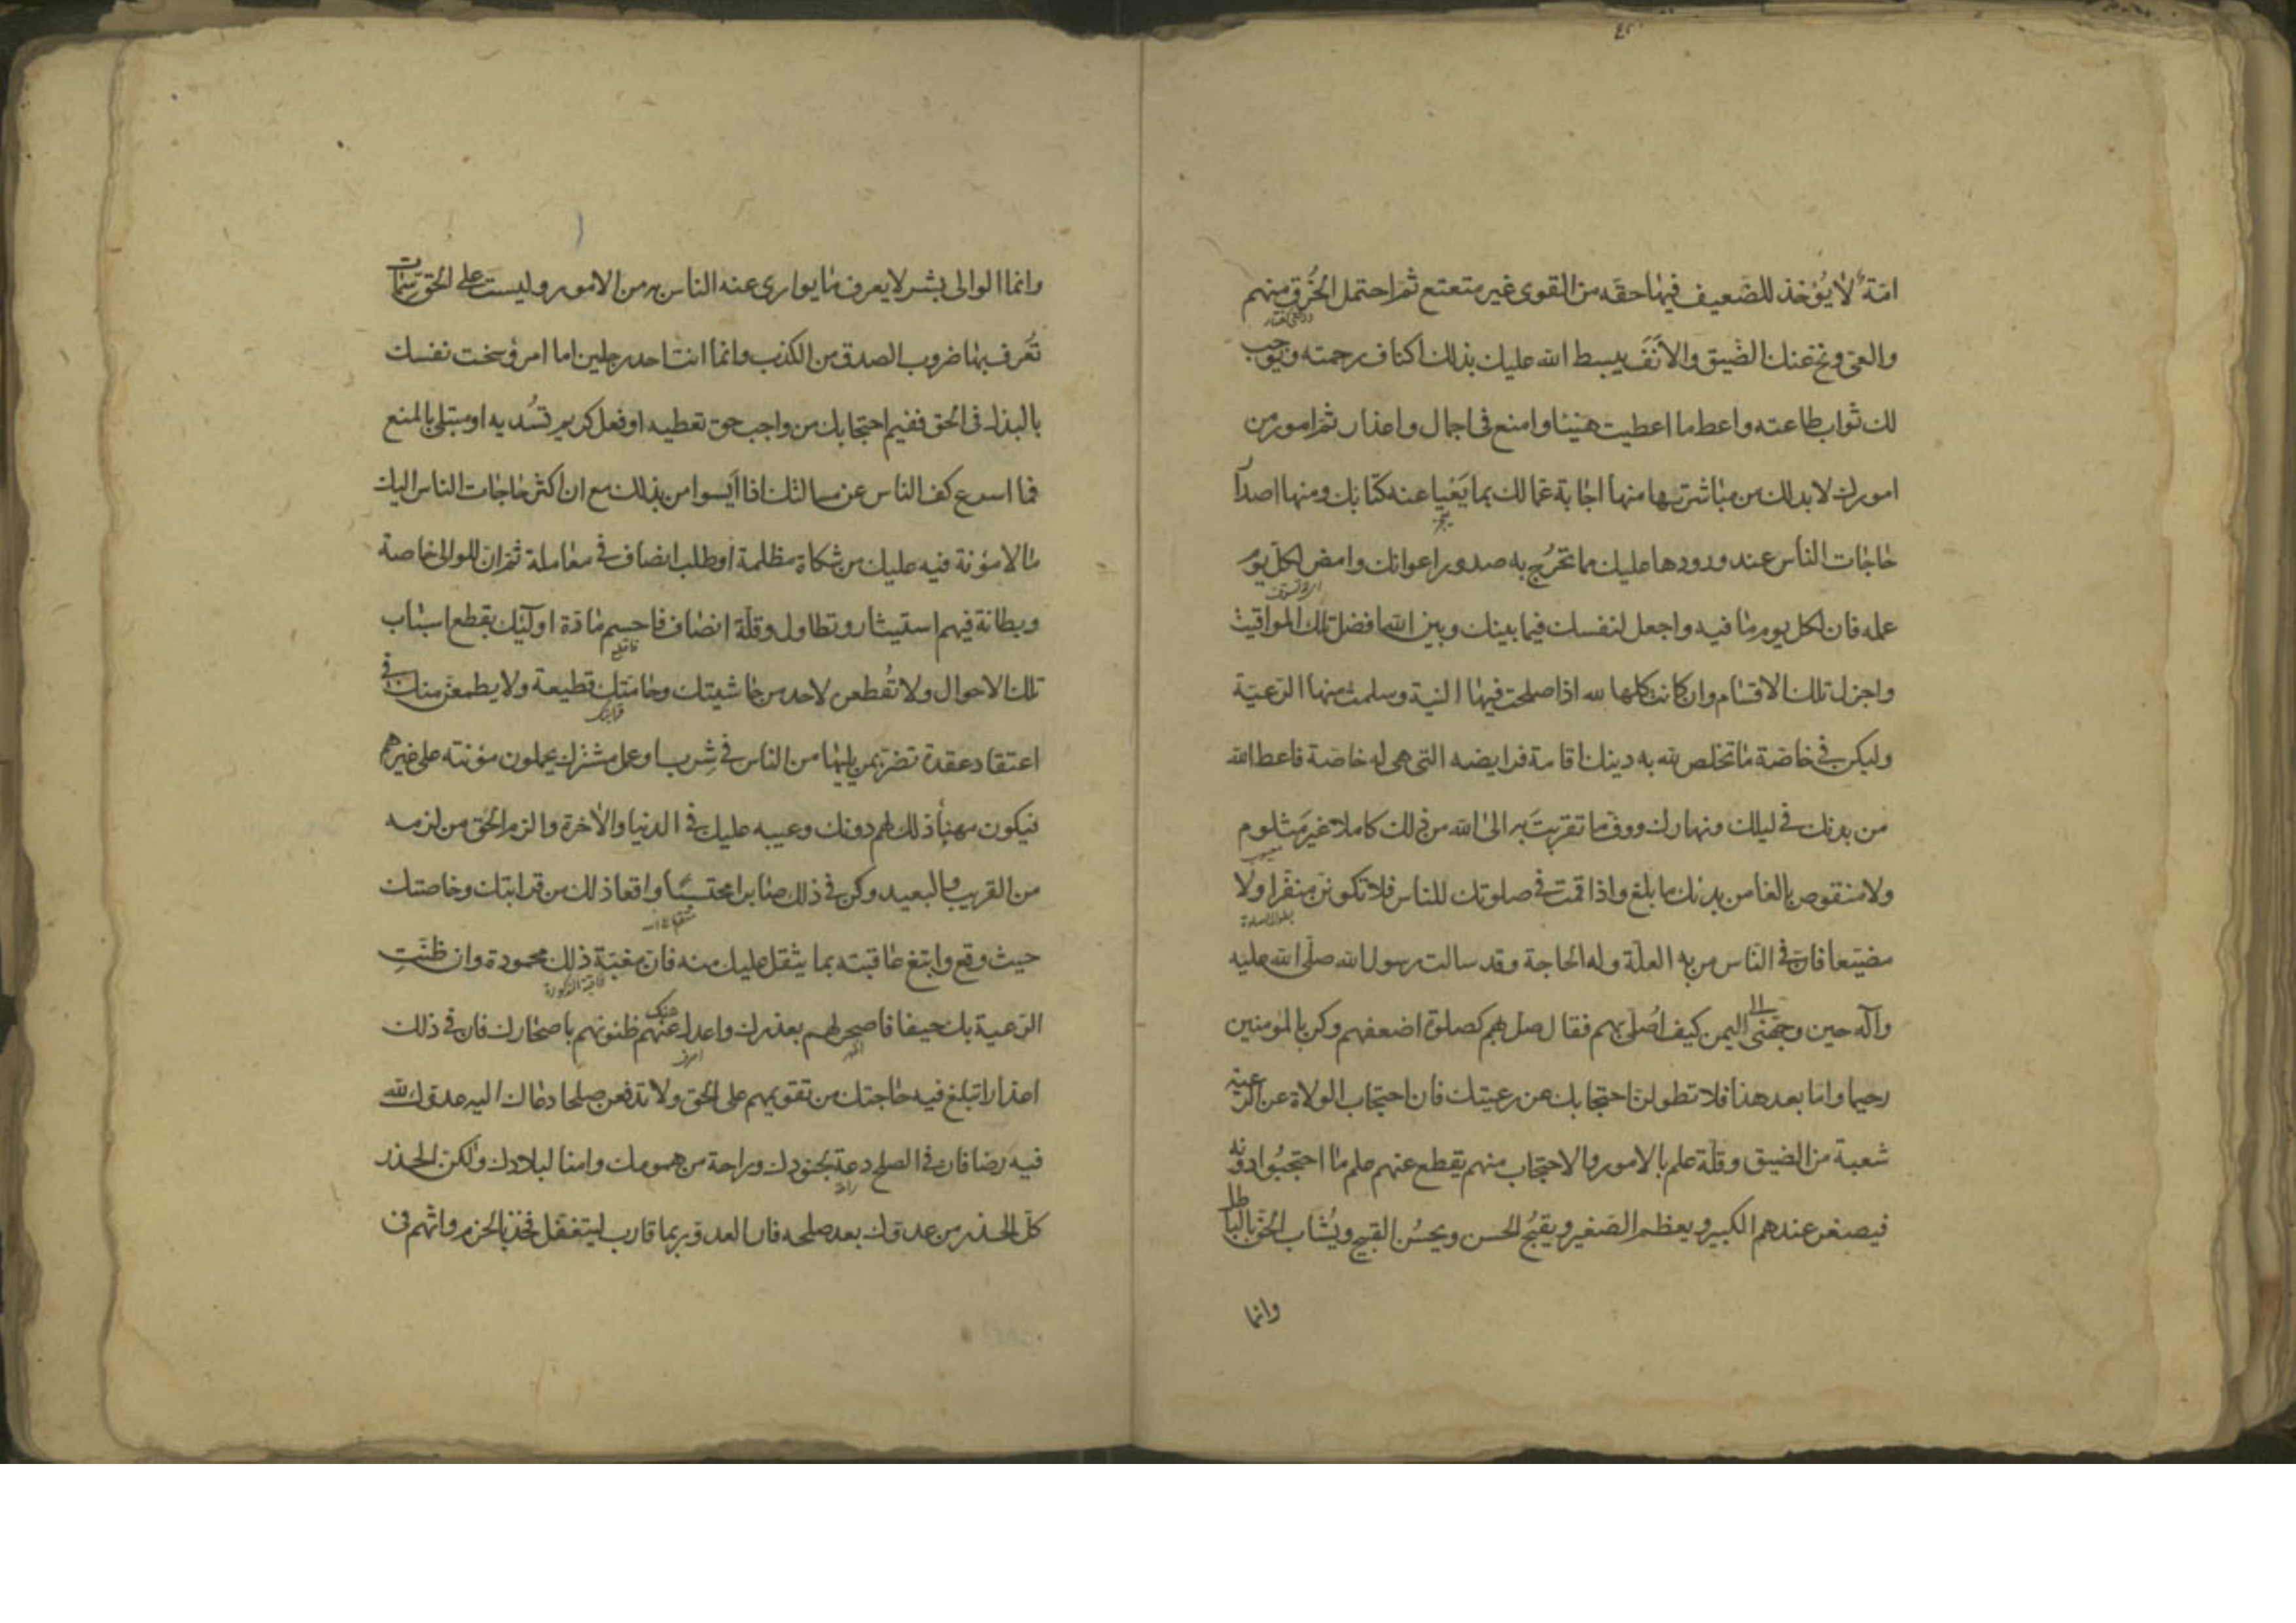 امّة لا يُؤخذ للضّعيف فيها حقّه من القوى غير متعتع ثمّ احتمل الخُرق منهم
والعىّ ونحّ عنك الضّيق والأنَفَ يبسط الله عليك بذلك اكناف رحمته ويوجب
لك ثواب طاعته واعط ما اعطيت هنيئا وامنع فى اجمال واعذار ثمّ امور من
امورك لا بد لك من مباشرتها منها اجابة عمّالك بما يَعْيا عنه كتّابك ومنها اصدار
حاجات الناس عند ورودها عليك مما تحرُج به صدور اعوانك وامض لكلّ يوم
عمله فان لكل يوم ما فيه واجعل لنفسك فيما بينك وبين الله افضل تلك المواقيت
واجزل تلك الاقسام وان كانت كلها لله اذا صلحت فيها النية وسلمت منها الرّعيّة
وليكن فى خاصّة ما تخلص لله به دينك اقامة فرايضه التى هى له خاصّة فاعط الله
من بدنك فى ليلك ونهارك ووفّ ما تقربتَ به الى الله من ذلك كاملا غير مَثلوم
ولا منقوص بالغا من بدنك ما بلغ واذا قمت فى صلوتك للناس فلا تكوننّ منفّرا ولا
مضيّعا فانّ فى النّاس من به العلّة وله الحاجة وقد سالت رسول الله صلّى الله عليه
وآله حين وجّهنى الى اليمن كيف اُصلّى بهم فقال صلّ بهم كصلوة اضعفهم وكن بالمؤمنين
رحيما وامّا بعد هذا فلا تطولنّ احتجابك عن رعيتك فان احتجاب الولاة عن الرّعيّة
شعبة من الضيق وقلّة علم بالامور والاحتجاب منهم يقطع عنهم علم ما احتجبُوا دونه
فيصغر عندهم الكبير ويعظم الصّغير ويقبُح الحسن ويحسُن القبيح ويُشاب الحقّ بالباطل
وانما
وانما الوالى بشر لا يعرف ما يوارى عنه الناس به من الامور وليست على الحق سمات
تُعرف بها ضروب الصدق من الكذب وانما انت احد رجلين اما امرؤ سخت نفسك
بالبذل فى الحق ففيم احتجابك من واجب حق تعطيه او فعل كريم تُسْديه او مبتلى بالمنع
فما اسرع كف الناس عن مسالتك اذا أيسوا من بذلك مع ان اكثر حاجات الناس اليك
ما لا مؤنة فيه عليك من شكاة مظلمة او طلب انصاف فى معاملة ثمّ انّ للوالى خاصة
وبطانة فيهم استيثار وتطاول وقلّة انصاف فاحسِم مادّة اولئك بقطع اسباب
تلك الاحوال ولا تُقطعن لاحد من حاشيتك وحامّتك قطيعة ولا يطمعنّ منك فى
اعتقاد عقدة تضرّ بمن يليها من الناس فى شِرب او عمل مشترك يحملون مؤنته على غيرهم
فيكون مهنأ ذلك لهم دونك وعيبه عليك فى الدنيا والآخرة والزم الحق من لزمه
من القريب والبعيد وكن فى ذلك صابرا محتسبا واقعا ذلك من قرابتك وخاصتك
حيث وقع وابتغ عاقبته بما يثقل عليك منه فان مغبّة ذلك محمودة وان ظنّتِ
الرّعية بك حيفا فاصحر لهم بعذرك واعدل عنهم ظنونهم باصحارك فان فى ذلك
اعذارا تبلغ فيه حاجتك من تقويمهم على الحق ولا تدفعن صلحا دعاك اليه عدوّك لله
فيه رضا فان فى الصلح دعة لجنودك وراحة من همومك وامنا لبلادك ولكن الحذر
كلّ الحذر من عدوّك بعد صلحه فان العدوّ ربما قارب ليتغفّل فخذ بالحزم واتّهم فى